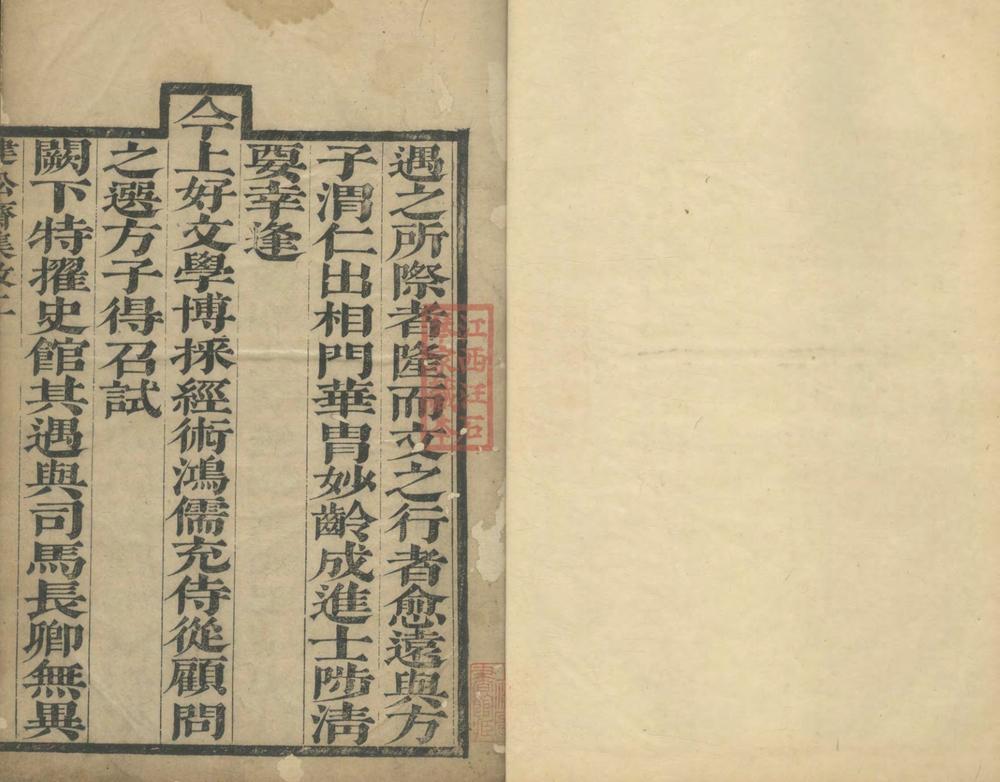 遇之所際者隆而文之行者愈遠與方
子渭仁出相門華胄妙齡成進士陟清
要幸逢
今上好文學博採經術鴻儒充侍從顧問
之選方子得召試
闕下特擢史館其遇與司馬長卿無異
健松齋集敘二
江西汪石